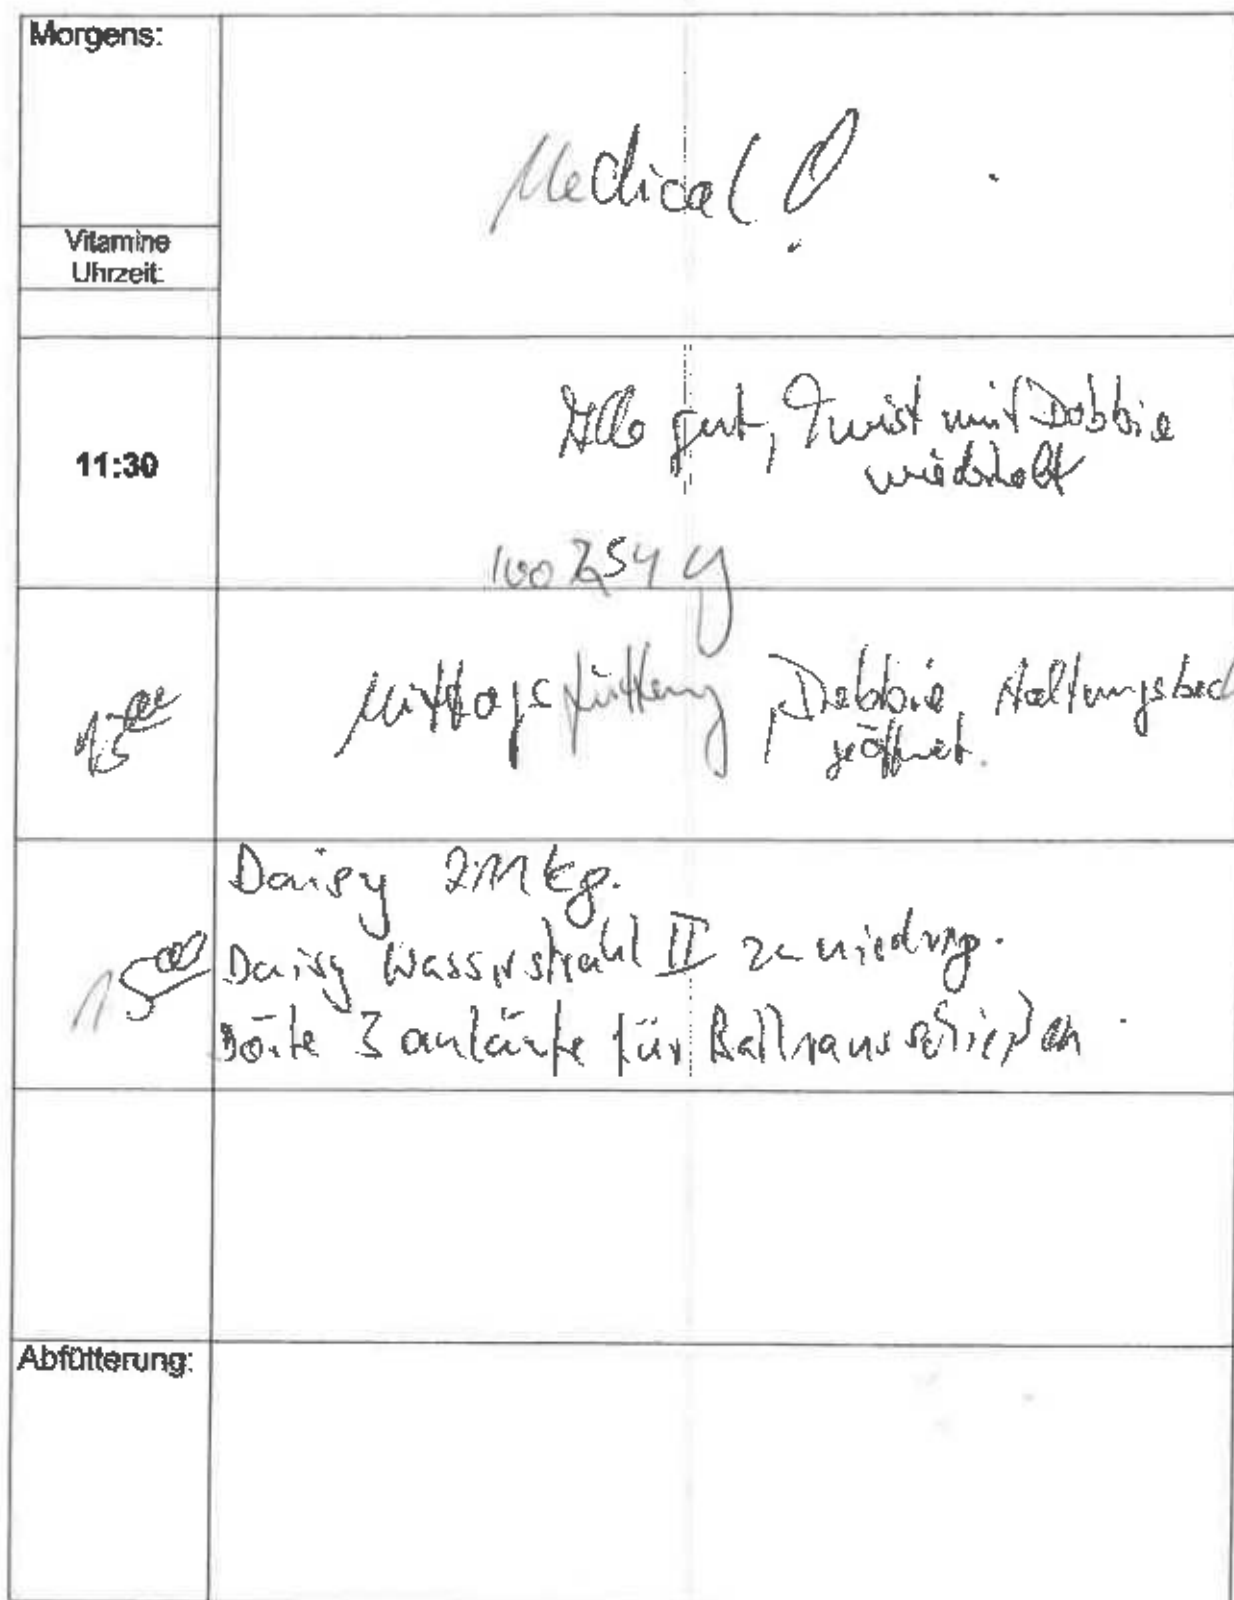 Morgens:
Medical!
Vitamine
Uhrzeit:
11:30
Alle gut, Twist mit Debbie
wiederholt
13⁰⁰
Mittagsfütterung Debbie, Haltungsbeck
geöffnet.
15⁰⁰
Daisy 211 kg.
Daisy Wasserstrahl II zu niedrig.
3 anläufe für Ballrausschießen.
Abfütterung: